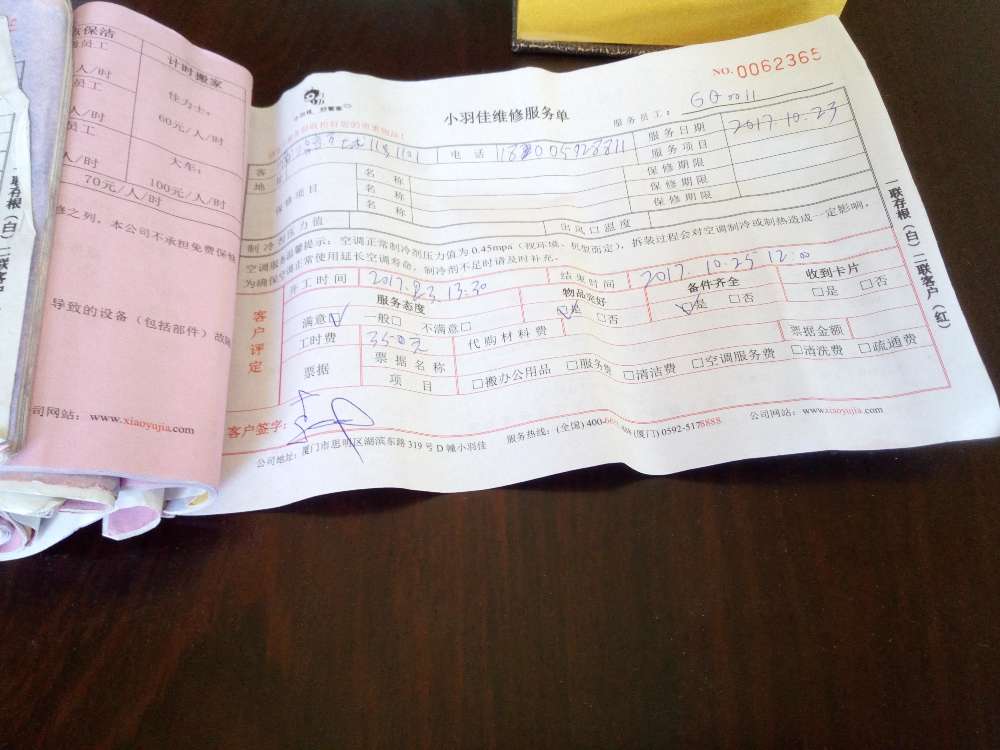 保洁
员工
计时搬家
人/时
佳力士:
员工
60元/人/时
人/时
员工
大车:
/时
100元/人/时
70元/人/时
之列。本公司不承担免费保
导致的设备（包括部件）故
公司网站：www.xiaoyujia.com
存根（白）二联客户
NO.0062365
小羽佳维修服务单
服务员工：GQ0011
电话
服务日期 2017.10.23
服务项目
地
保修项目
名称
名称
名称
保修期限
保修期限
保修期限
出风口温度
空调正常制冷剂压力值为0.45mpa（视环境、机型而定），拆装过程会对空调制冷或制热造成一定影响，
为确保空调正常使用延长空调寿命，制冷剂不足时请及时补充。
开工时间
13:30
结束时间 2017.10.25 12:00
客户评定
服务态度
物品完好
备件齐全
收到卡片
满意□ 一般□ 不满意□
□是 □否
□是 □否
□是 □否
工时费 350元
代购材料费
票据金额
票据
票据名称
项目
□搬办公用品 □服务费 □清洁费 □空调服务费 □清洗费 □疏通费
客户签字：
公司地址：厦门市思明区湖滨东路319号D幢小羽佳
服务热线：(全国)400-
(厦门)0592-5178888
公司网站：www.xiaoyujia.com
一联存根（白）二联客户（红）